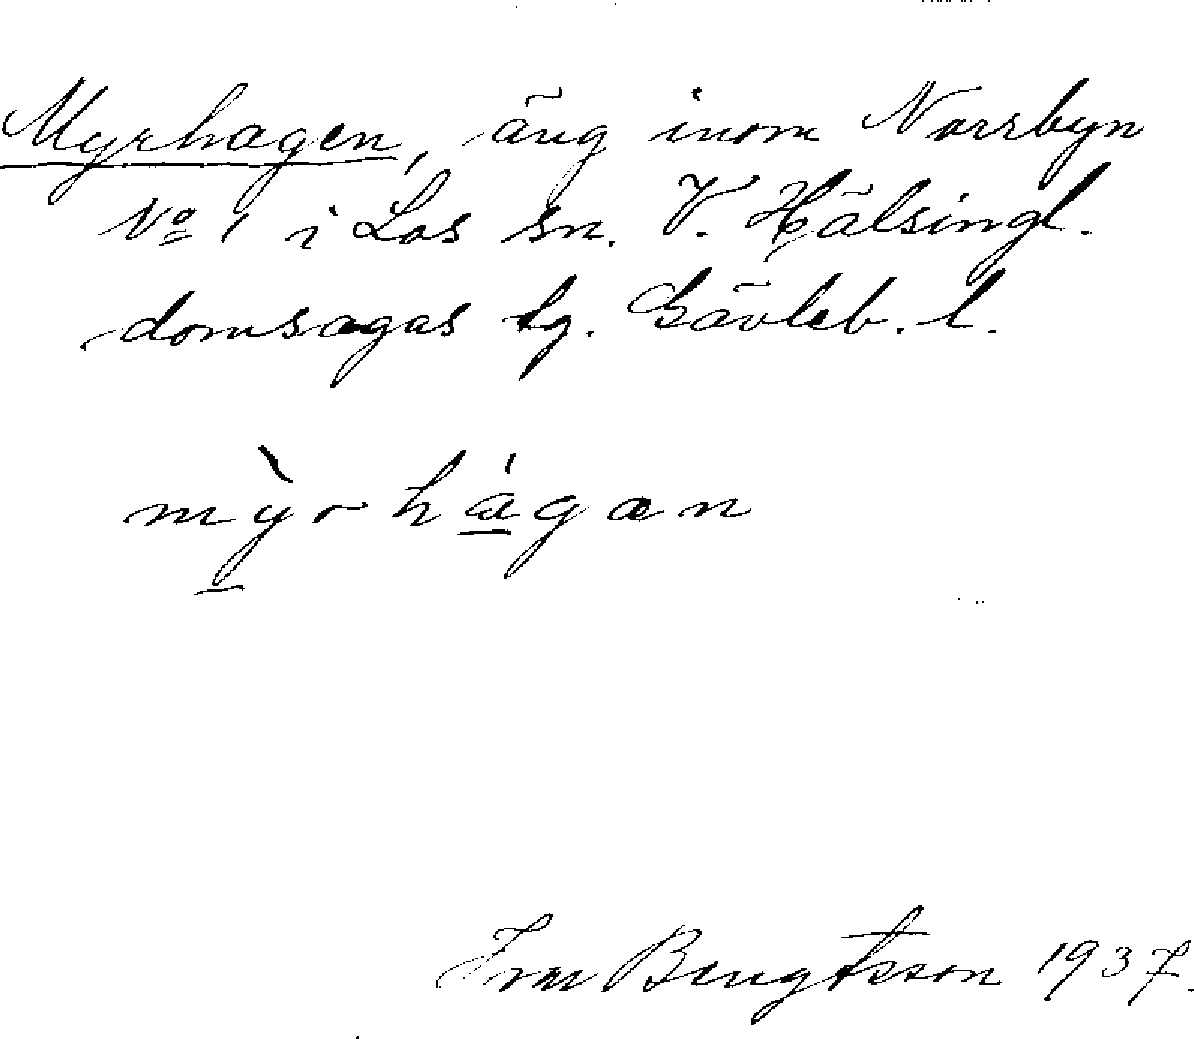 Myrhagen, äng inom Norrbyn
No 1 i Los sn. V. Hälsingl.
domsagas tg. Gävleb. l.
mỳrhágan
Bengtsson 1937.